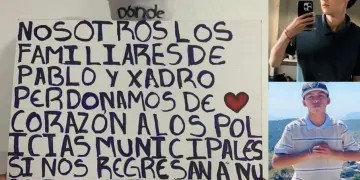 DONDE
NOSOTROS LOS
FAMILIARES DE
PABLO Y XADRO
PERDONAMOS DE
CORAZÓN A LOS POL
ICIAS MUNICIPALES
SI NOS REGRESAN A NU